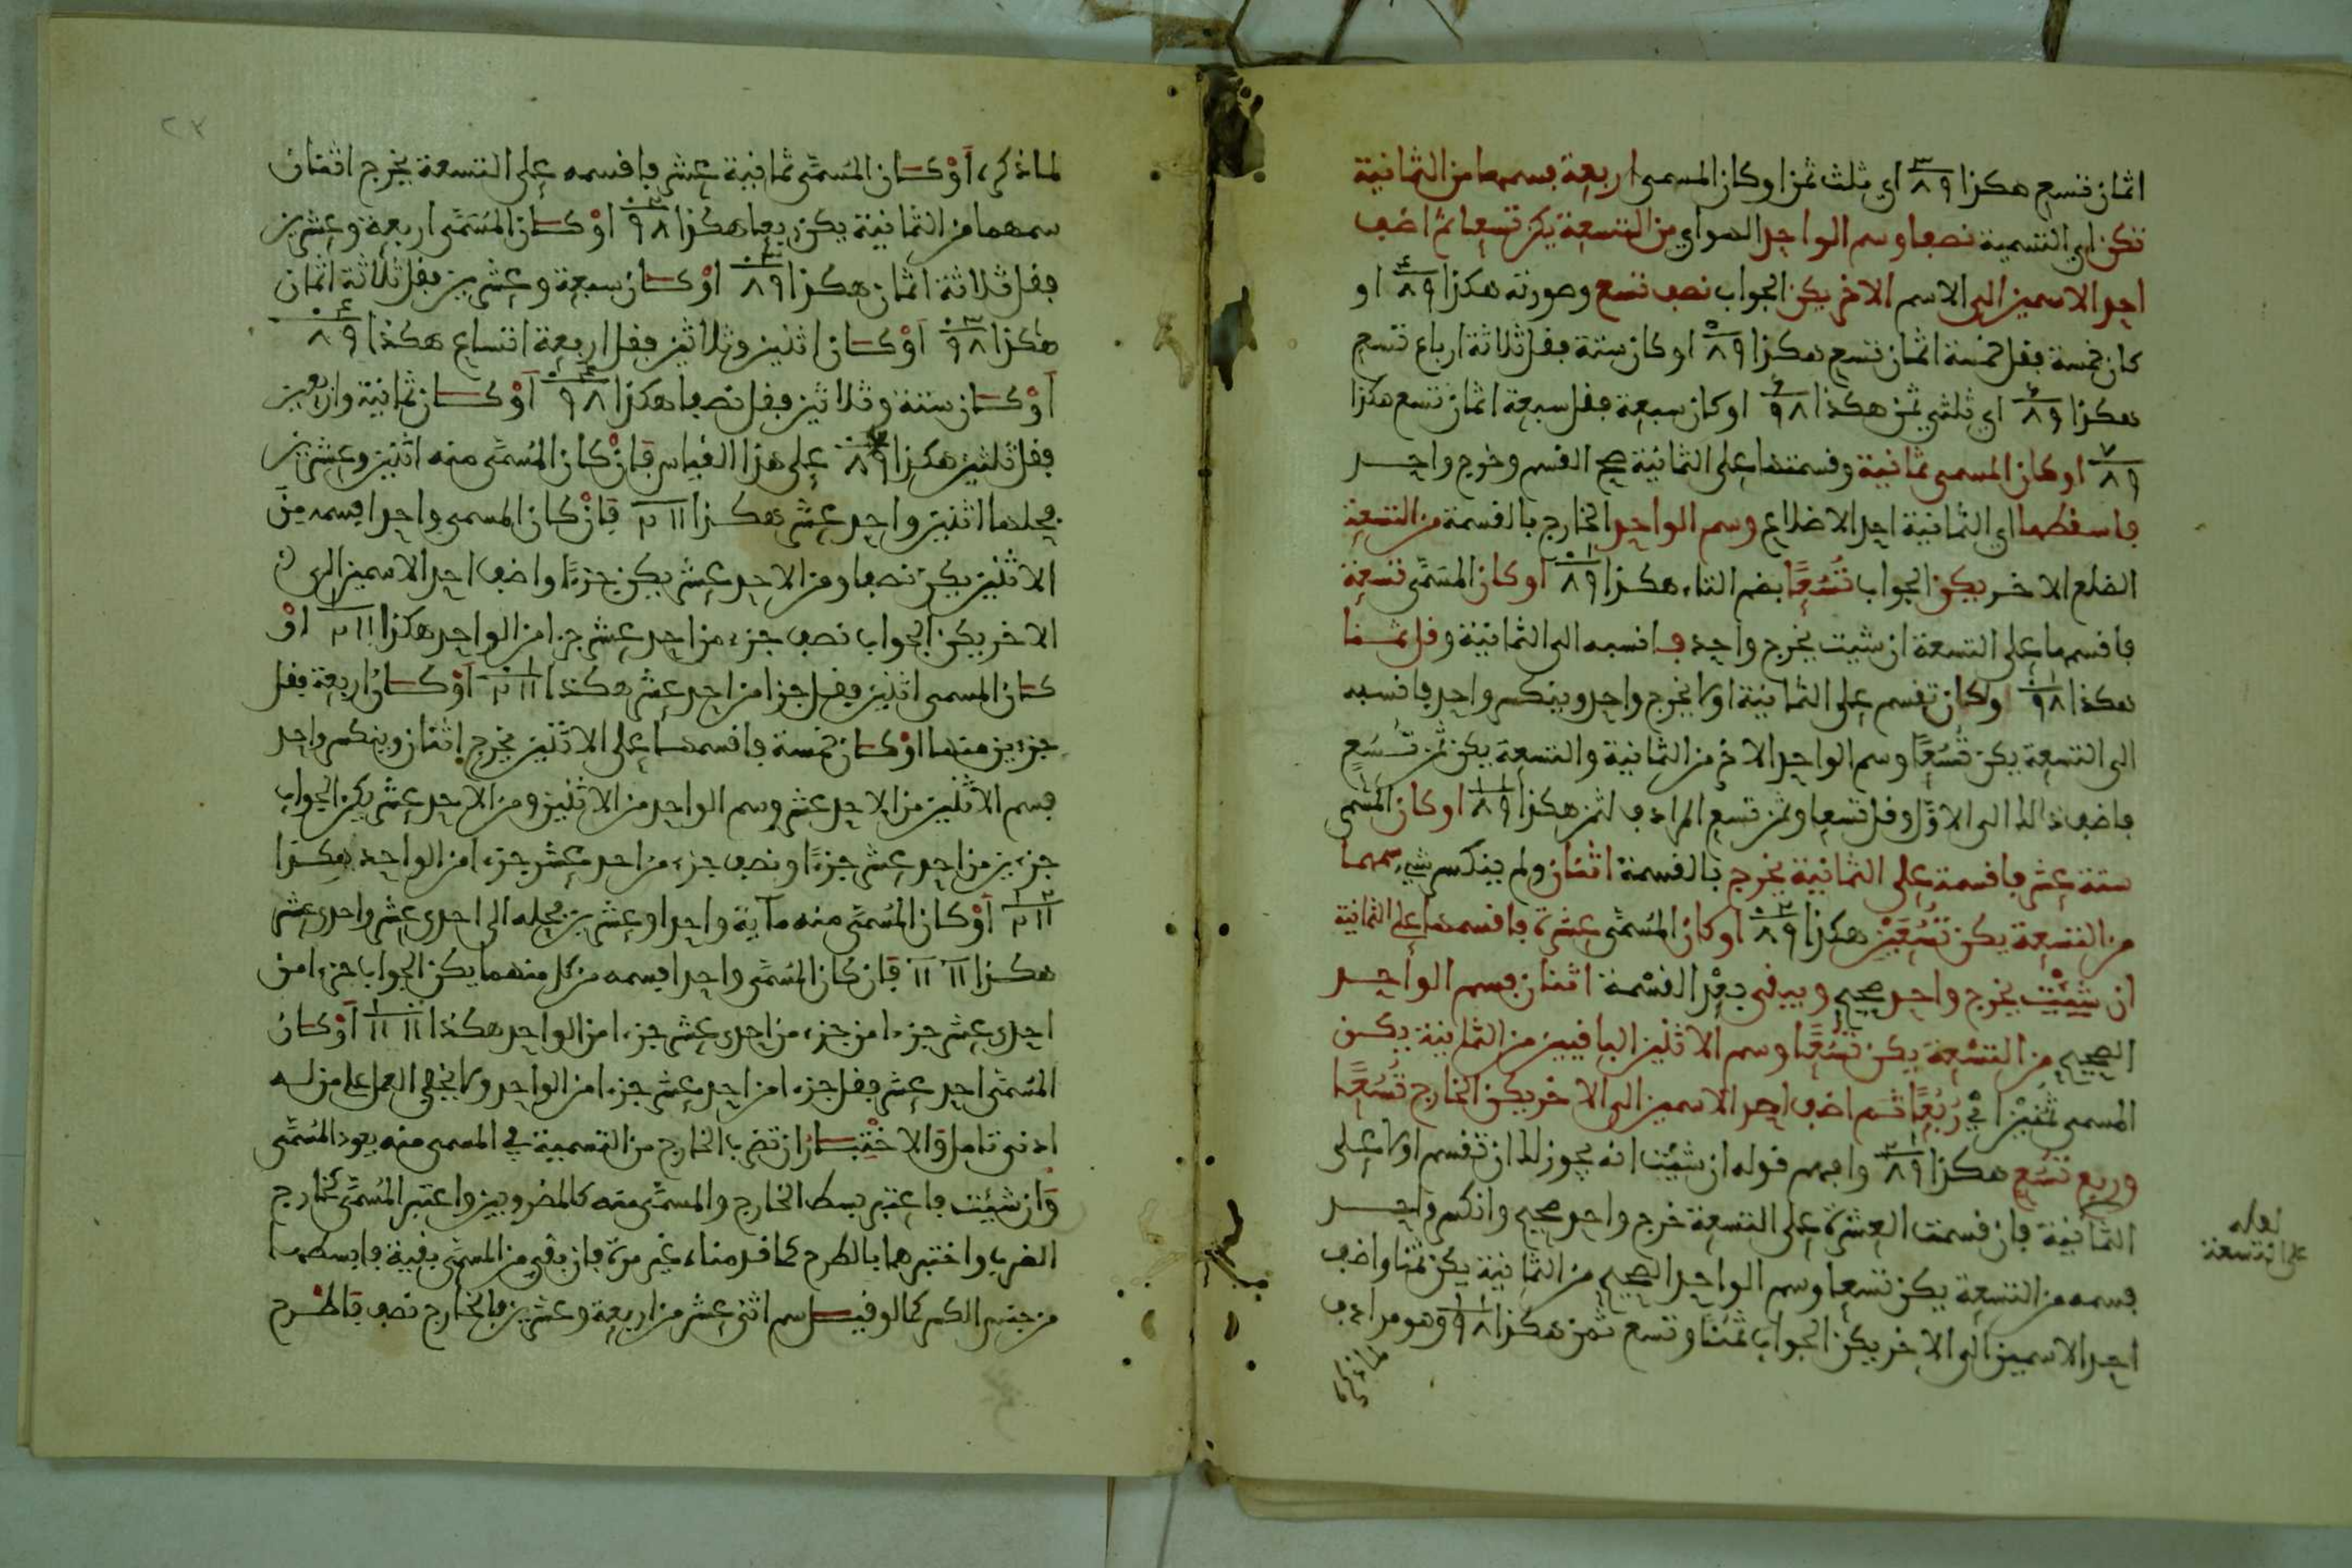 اثمان تسع هكذا ٣ ٨٩ اي ثلث ثمن او كان المسمى اربعة فسمها من الثمانية
تكن اي التسمية نصفا وسم الواحد الهواي من التسعة يكن تسعا ثم اضف
احد الاسمين الى الاسم الاخر يكن الجواب نصف تسع وصورته هكذا ٤ ٨٩ او
كان خمسة فقل خمسة اثمان تسع هكذا ٥ ٨٩ او كان ستة فقل ثلاثة ارباع تسع
هكذا ٦ ٨٩ اي ثلثي ثمن هكذا ٦ ٩٨ او كان سبعة فقل سبعة اثمان تسع هكذا
٧ ٨٩ او كان المسمى ثمانية وقسمتها على الثمانية صح القسم وخرج واحد
فاسقطها اي الثمانية احد الاضلاع وسم الواحد الخارج بالقسمة من التسعة
الضلع الاخر يكن الجواب تُسُعًا بضم التاء هكذا ١٠ ٨٩ او كان المسمَّى تسعة
فاقسمها على التسعة ان شيت يخرج واحد فانسبه الى الثمانية وقل ثمنا
هكذا ١٠ ٩٨ او كان تقسم على الثمانية اولا يخرج واحد وينكسر واحد فانسبه
الى التسعة يكن تُسُعًا وسم الواحد الاخر من الثمانية والتسعة يكن ثمن تُسُع
فاضف ذالك الى الاول وقل تسعا وثمن تسع المرادف لثمن هكذا ١١ ٨٩ او كان المسمى
ستة عشر فاقسمه على الثمانية يخرج بالقسمة اثنان ولم ينكسر شيء سمهما
من التسعة يكن تُسُعَيْن هكذا ٢٠ ٨٩ او كان المُسمَّى عشرة فاقسمها على الثمانية
ان شِئْت يخرج واحد صحيح ويبقى بعْد القسْمة اثنان فسم الواحد
الصحيح من التسْعة يكن تُسُعًا وسم الاثنين الباقيين من الثمانية يكن
المسمى ثمنين اي رُبُعًا ثم اضف احد الاسمين الى الاخر يكن الخارج تُسُعًا
وربع تُسُع هكذا ٢١ ٨٩ وافهم قوله ان شِئْت انه يجوز لك ان تقسم اولا على
الثمانية فان قسمت العشرة على التسعة خرج واحد صحيح وانكسر واحد
فسمه من التسعة يكن تسعا وسم الواحد الصحيح من الثمانية يكن ثمنا واضف
احد الاسمين الى الاخر يكن الجواب ثمنًا وتسع ثمن هكذا ١١ ٩٨ وهو مرادف
لما ذكر
لعله
على التسعة
٢٣
لما ذكر، أوْ كان المُسمَّى ثمانية عشر فاقسمه على التسعة يخرج اثنان
سمهما من الثمانية يكن ربعا هكذا ٢٠ ٩٨ اوْ كان المُسَمَّى اربعة وعشرين
فقل ثلاثة اثمان هكذا ٣٠ ٨٩ اوْ كان سبعة وعشرين فقل ثلاثة اثمان
هكذا ٣٠ ٩٨ اَوْ كان اثنين وثلاثين فقل اربعة اتساع هكذا ٤٠ ٨٩
اَوْ كان ستة وثلاثين فقل نصفا هكذا ٤٠ ٩٨ اَوْ كان ثمانية واربعين
فقل ثلثين هكذا ٦٠ ٨٩ على هذا القياس فَإنْ كان المُسمَّى منه اثنين وعشرين
فحلها اثنين واحد عشر هكذا ٢١١ فَإنْ كان المسمى واحدا فسمه مِنَ
الاثنين يكن نصفا ومن الاحد عشر يكن جزءًا واضف احد الاسمين الى
الاخر يكن الجواب نصف جزء من احد عشر جزءا من الواحد هكذا ١ ٢١١ اوْ
كان المسمى اثنين فقل جزءا من احد عشر هكذا ١٠ ٢١١ اَوْ كان اربعة فقل
جزءين منها اوْ كان خمسة فاقسمها على الاثنين يخرج اثنان وينكسر واحد
فسم الاثنين من الاحد عشر وسم الواحد من الاثنين ومن الاحد عشر يكن الجواب
جزءين من احد عشر جزءًا ونصف جزء من احد عشر جزءا من الواحد هكذا
١٢ ٢١١ اَوْ كان المُسمَّى منه مائة واحدا وعشرين فحله الى احدى عشر واحدى عشر
هكذا ١١ ١١ فَإن كان المُسمَّى واحدا فسمه من كل منهما يكن الجواب جزءا من
احدى عشر جزءا من جزء من احدى عشر جزءا من الواحد هكذا ١ ١١ ١١ اَوْ كان
المُسَمَّى احد عشر فقل جزءا من احد عشر جزءا من الواحد ولا يخفى العمل على من له
ادنى تامل وَالاخْتِبَار ان تضرب الخارج من التسمية في المسمى منه يعود المُسَمَّى
وَان شِئْت فاعتبر بسط الخارج والمسمَّى منه كالمضروبين واعتبر المُسمَّى كخارج
الضرب واختبرهما بالطرح كما قدمناه غير مرة فان بقي من المسمَّى بقية فابسطها
من جنس الكسر كما لو قيل سم اثنى عشر من اربعة وعشرين فالخارج نصف فَاطْرح